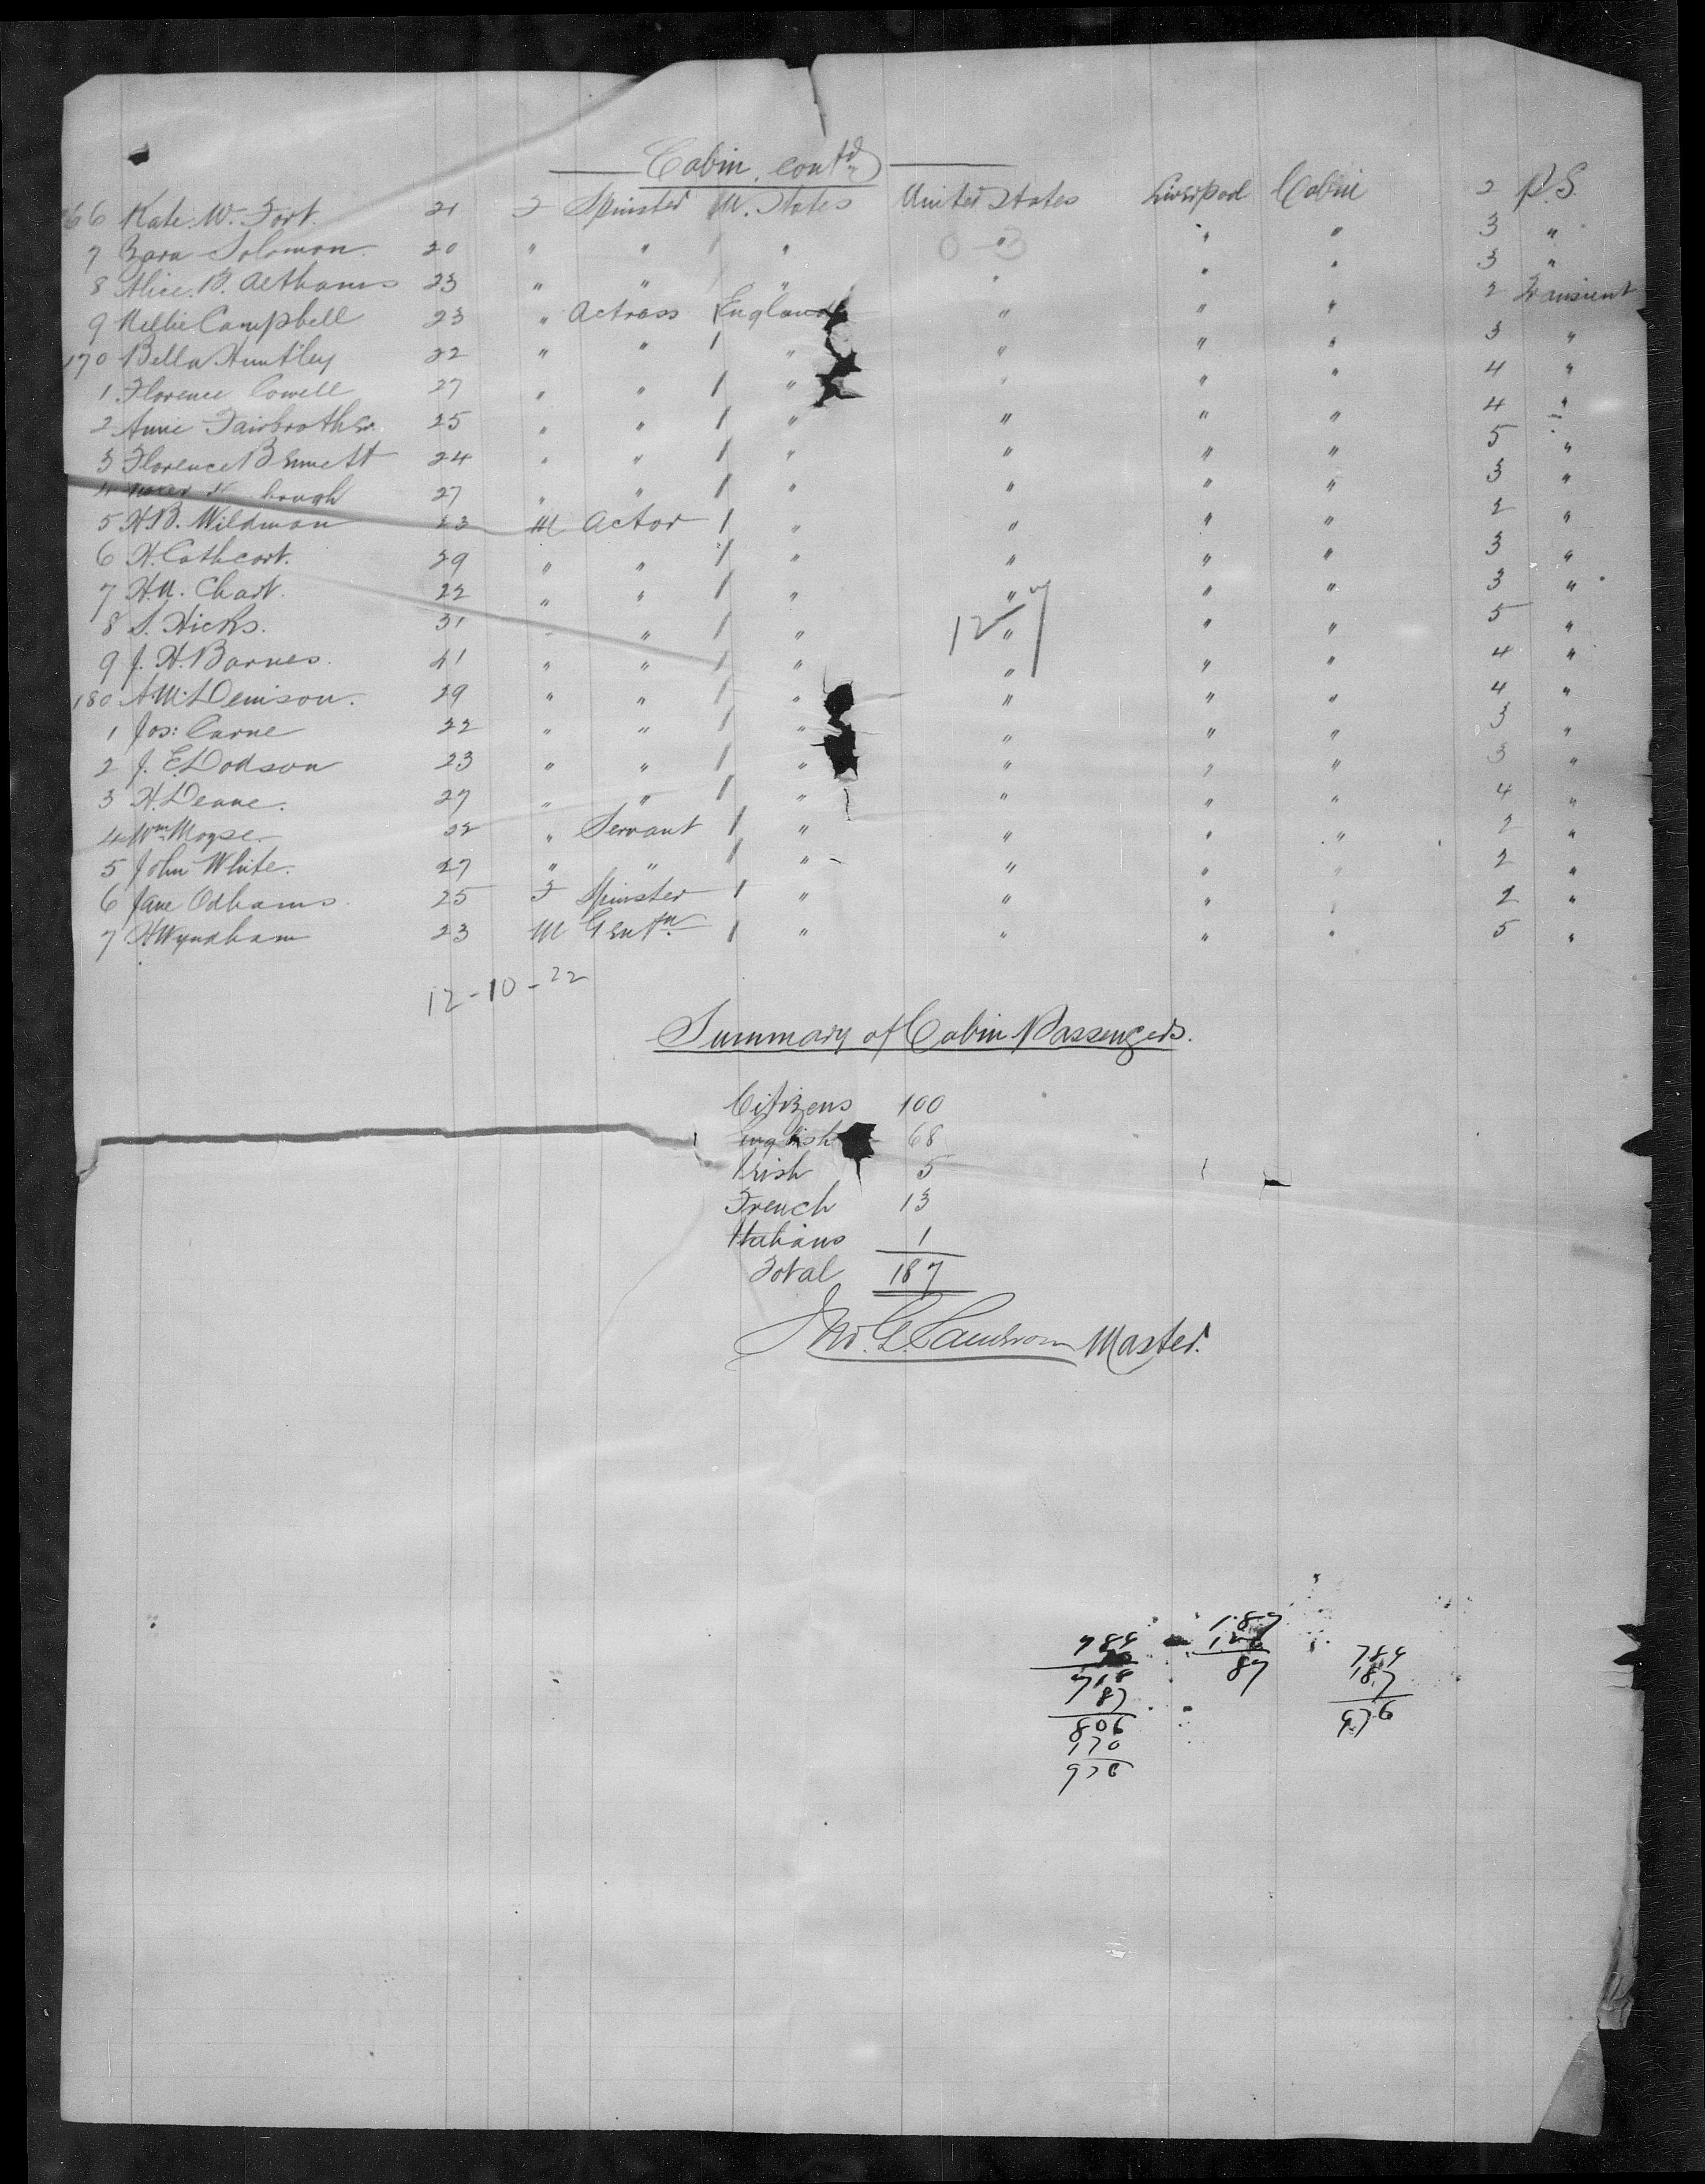 Cabin contd
166 Kate. W. Fort. 21 F Spinster U. States United States Liverpool Cabin 2 P.S.
7 Zara Solomon. 20 " " " " " " 3 "
8 Alice. B. 23 " " " " " " 3 "
9 Nellie Campbell 23 " Actress England " " " 2 Transient
170 Bella Huntley 22 " " / " " " " 3 "
1 Florence Cowell 27 " " / " " " " 4 "
2 Annie Fairbrother. 25 " " / " " " " 4 "
3 Florence Bennett 24 " " / " " " " 5 "
4 27 " " / " " " " 3 "
5 H.B. Wildman 23 M Actor / " " " " 2 "
6 H. Cathcart. 29 " " / " " " " 3 "
7 H.N. Chart. 22 " " / " " " " 3 "
8 S. Hicks. 31 " " / " " " " 5 "
9 J. H. Barnes. 41 " " / " " " " 4 "
180 A.M. Denison. 29 " " / " " " " 4 "
1 Jos: Carne 22 " " / " " " " 3 "
2 J. E. Dodson 23 " " / " " " " 3 "
3 H. Deane. 27 " " / " " " " 4 "
4 Wm Moyse 22 " Servant / " " " " 2 "
5 John White. 27 " " / " " " " 2 "
6 Jane Odhams 25 F Spinster / " " " " 2 "
7 H Wyndham 23 M Gentn. / " " " " 5 "
12-10-22
Summary of Cabin Passengers.
Citizens 100
English 68
Irish 5
French 13
Italians 1
Total 187
Jno. G. Master.
789 187 789
87 187
718 976
87
806
170
976